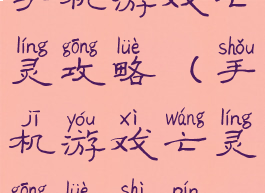 手机游戏亡
líng gōng lüè shǒu
灵攻略（手
jī yóu xì wáng líng
机游戏亡灵
gōng lüè shì pín